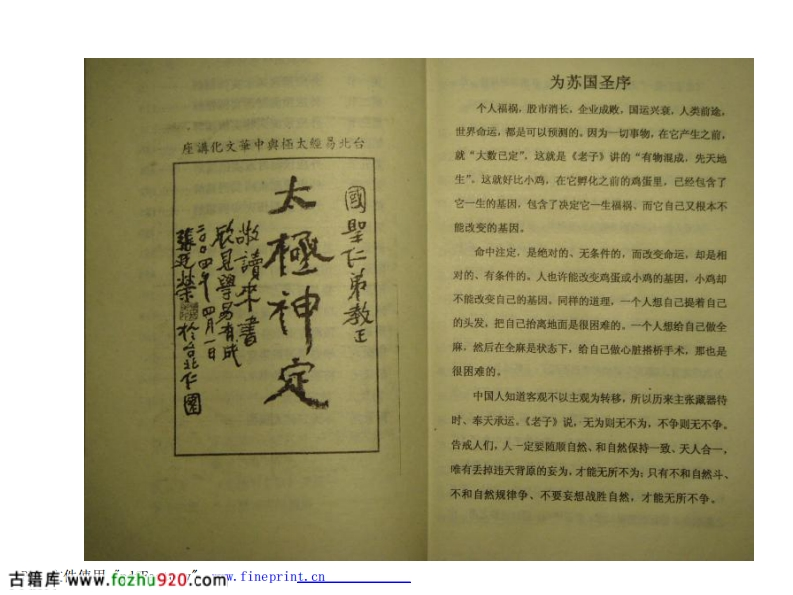 台北易經太極與中華文化講座
國聖仁弟教正
太極神定
敬讀來書
欣見學易有成
二〇〇四年四月一日
張廷榮於台北仁園
为苏国圣序
个人福祸，股市消长，企业成败，国运兴衰，人类前途，
世界命运，都是可以预测的。因为一切事物，在它产生之前，
就“大数已定”，这就是《老子》讲的“有物混成，先天地
生”，这就好比小鸡，在它孵化之前的鸡蛋里，已经包含了
它一生的基因，包含了决定它一生福祸、而它自己又根本不
能改变的基因。
命中注定，是绝对的、无条件的，而改变命运，却是相
对的、有条件的。人也许能改变鸡蛋或小鸡的基因，小鸡却
不能改变自己的基因。同样的道理，一个人想自己提着自己
的头发，把自己抬离地面是很困难的。一个人想给自己做全
麻，然后在全麻是状态下，给自己做心脏搭桥手术，那也是
很困难的。
中国人知道客观不以主观为转移，所以历来主张藏器待
时、奉天承运。《老子》说，无为则无不为，不争则无不争。
告戒人们，人一定要随顺自然、和自然保持一致、天人合一，
唯有丢掉违天背原的妄为，才能无所不为；只有不和自然斗、
不和自然规律争、不要妄想战胜自然，才能无所不争。
www.fineprint.cn
古籍库 www.fozhu920.com